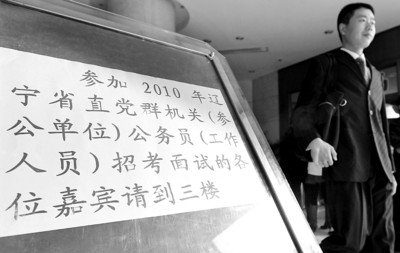 参加 2010 年辽
宁省直党群机关(参
公单位)公务员(工作
人员)招考面试的各
位嘉宾请到三楼